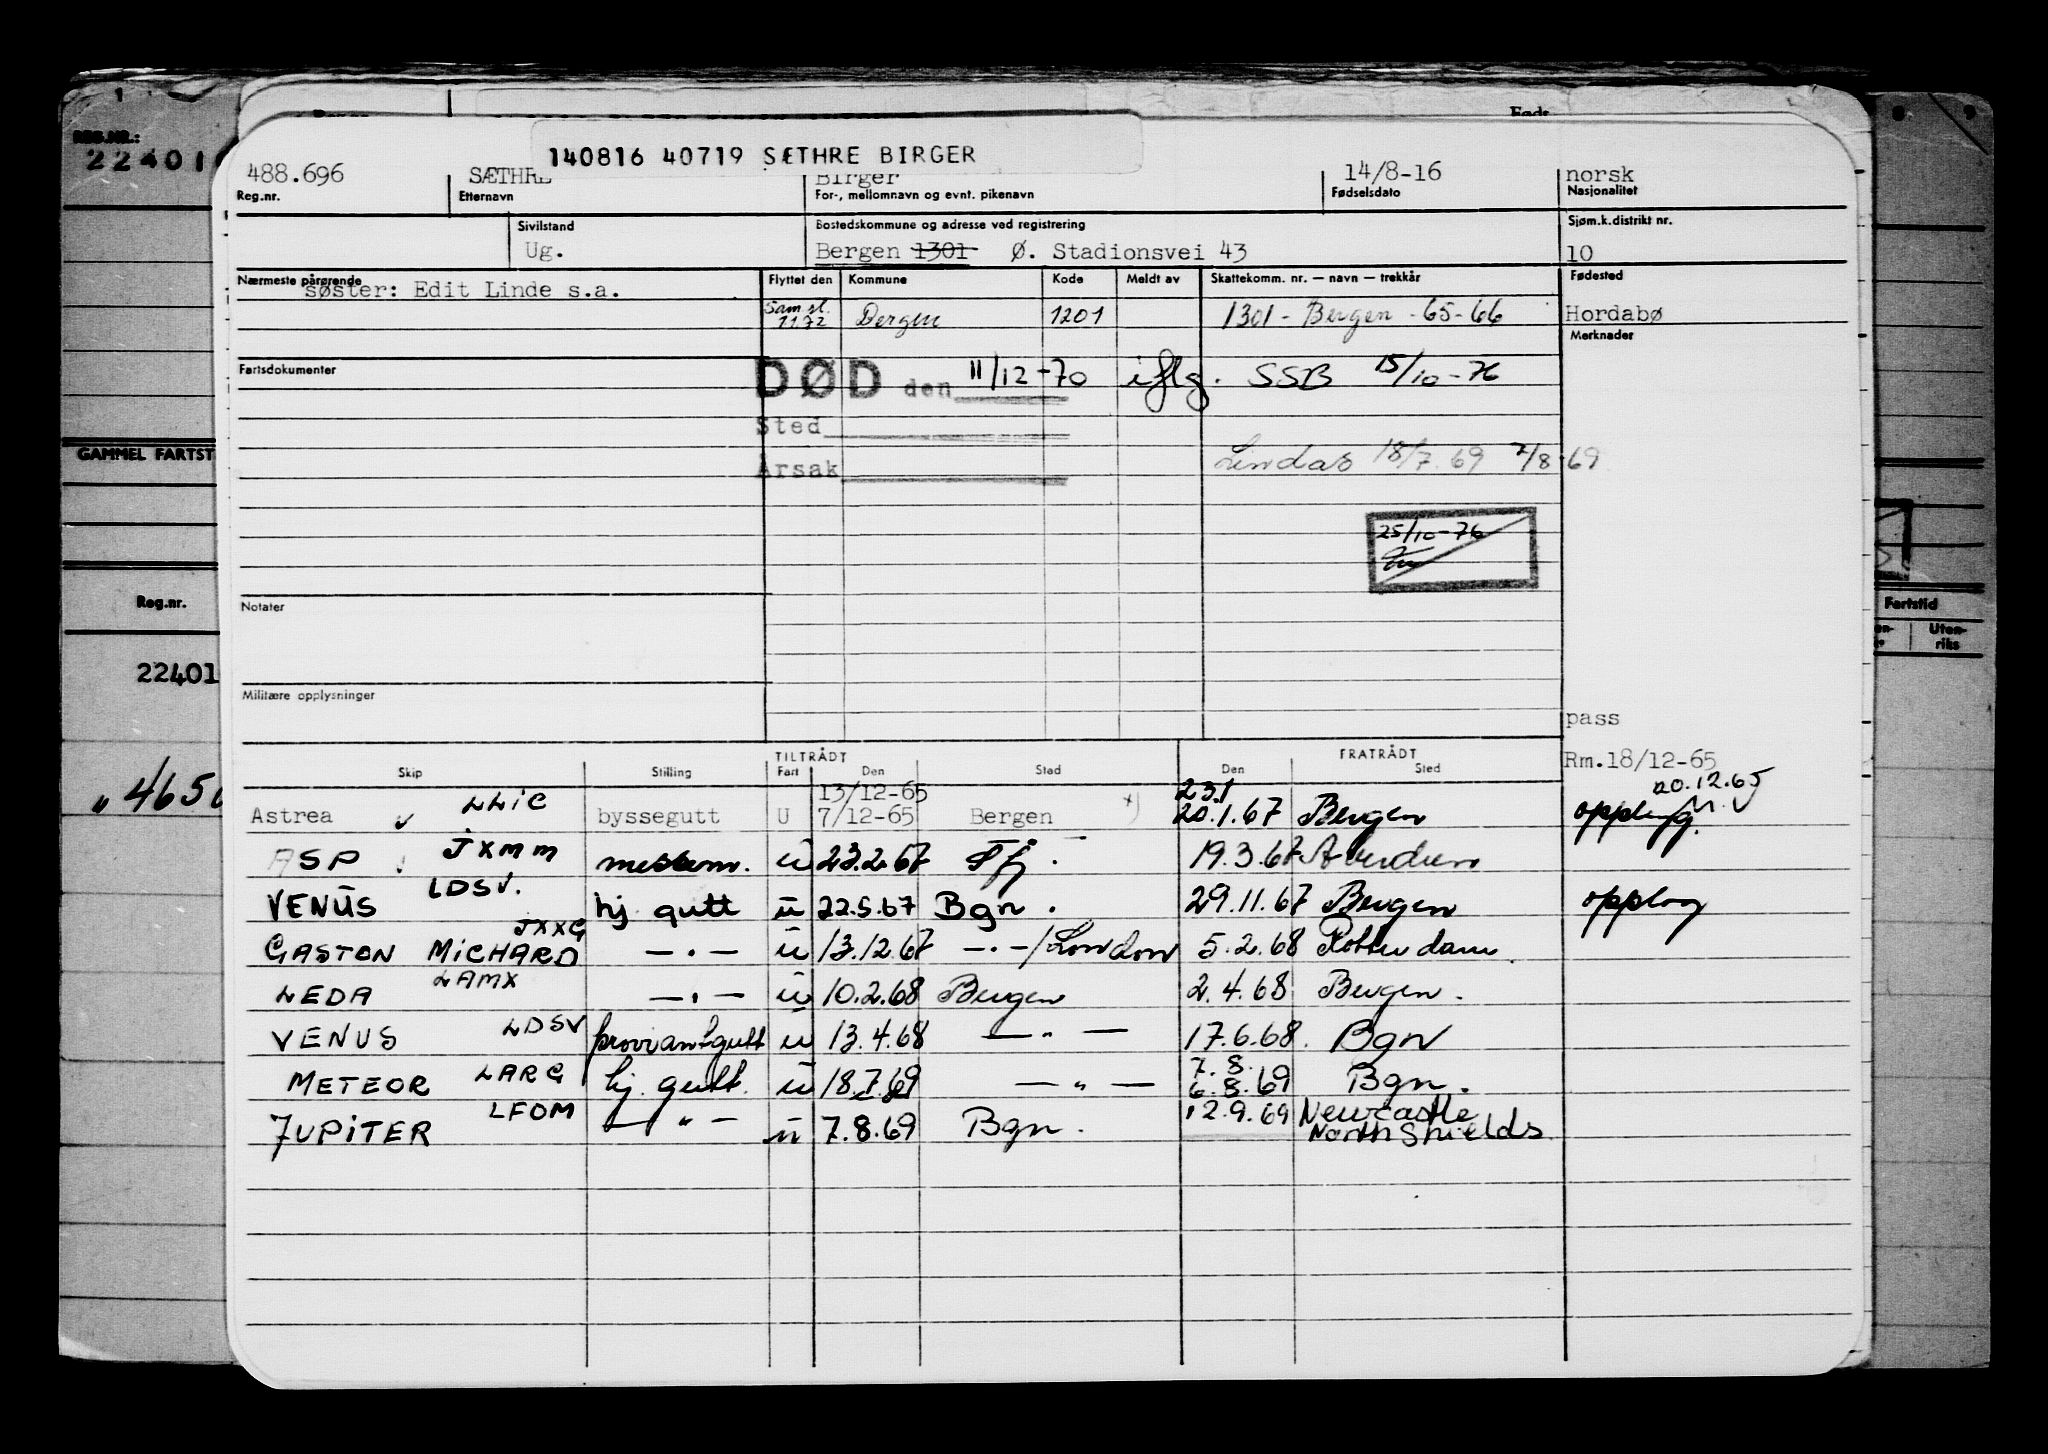 REG.NR.:
22401
140816 40719 SÆTHRE BIRGER
488.696 SÆTHRE Birger 14/8-16 norsk
Reg.nr. Etternavn For-, mellomnavn og evnt. pikenavn Fødselsdato Nasjonalitet
Sivilstand Bostedskommune og adresse ved registrering Sjøm.k.distrikt nr.
Ug. Bergen 1301 Ø. Stadionsvei 43 10
Nærmeste pårørende Flyttet den Kommune Kode Meldt av Skattekomm. nr. — navn — trekkår Fødested
søster: Edit Linde s.a.
Sam sl. 1.1.72 Bergen 1201 1301 - Bergen - 65-66 Hordabø
Merknader
Fartsdokumenter
DØD den 11/12-70 iflg. SSB 15/10-76
Sted
Årsak
Lindås 18/7.69 7/8-69
GAMMEL FARTST
25/10-76
Notater
Reg.nr.
Fartstid
Uten-
riks
22401
Militære opplysninger
pass
TILTRÅDT FRATRÅDT
Rm.18/12-65
Skip Stilling Fart Den Sted Den Sted
20.12.65
"465
13/12-65 23.1
Astrea LLIC byssegutt U 7/12-65 Bergen x) 20.1.67 Bergen opplag
ASP JXMM u 23.2.67 19.3.67
VENUS LDSV. hj gutt u 22.5.67 Bgn. 29.11.67 Bergen opplag
GASTON MICHARD JXXG — . — u 13.12.67 — . — /London 5.2.68 Rotterdam.
LEDA LAMX — . — u 10.2.68 Bergen 2.4.68 Bergen.
VENUS LDSV proviantgutt u 13.4.68 — " — 17.6.68. Bgn
7.8.
METEOR LARG hj. gutt. u 18.7.69 — " — 6.8.69 Bgn.
JUPITER LFOM — " — u 7.8.69 Bgn. 12.9.69 Newcastle
North Shields